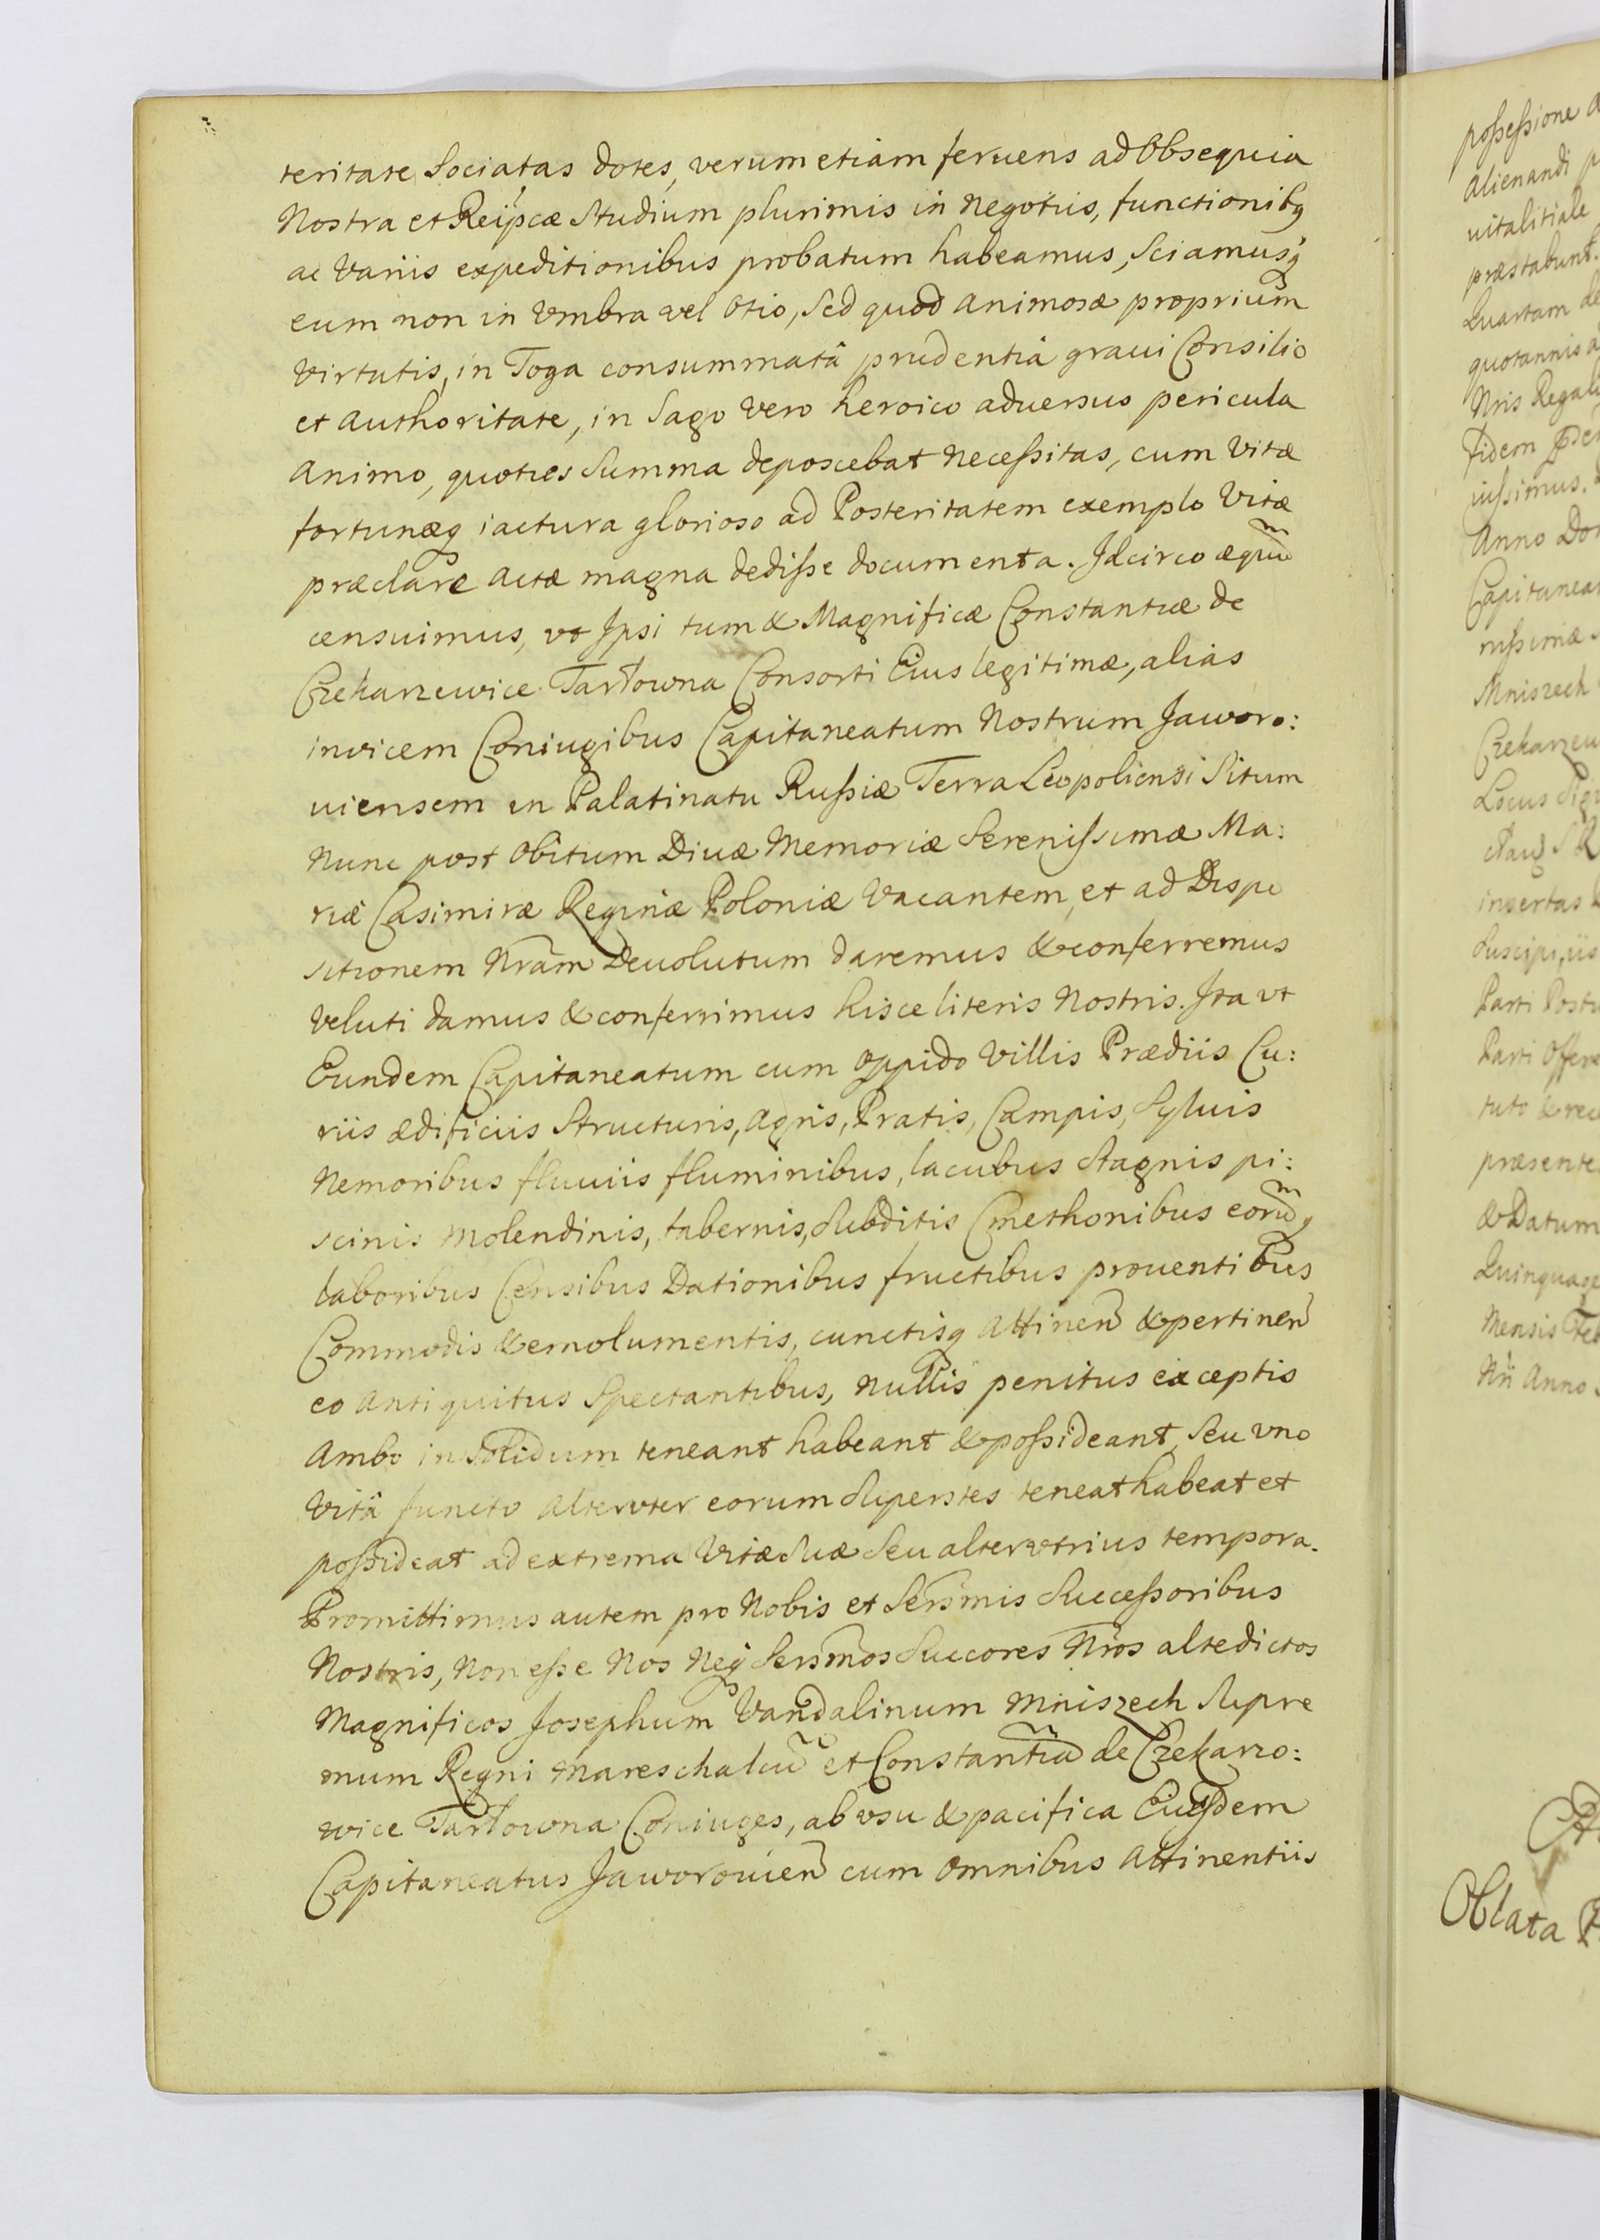 teritate Sociatas dotes, verum etiam feruens ad Obsequia
Nostra et Reipcæ Studium plurimis in Negotiis, functionibq
ac Variis expeditionibus probatum habeamus, Sciamusq
eum non in Vmbra vel Otio, Sed quod animosæ proprium
Virtutis, in Toga consummatâ prudentiâ graui Consilio
et Authoritate, in Sago Vero heroico aduersus pericula
Animo, quoties Summa deposcebat Necessitas, cum Vitæ
fortunæq iactura glorioso ad Posteritatem exemplo Vitæ
præclare actæ magna dedisse documenta. Idcirco æquũ
censuimus, vt Ipsi tum & Magnificæ Constantiæ de
Czekarzewice Tarłowna Consorti Eius legitimæ, alias
invicem Coniugibus Capitaneatum Nostrum Jaworo:
uiensem in Palatinatu Russiæ Terra Leopoliensi Situm
Nunc post Obitum Diuæ Memoriæ Serenissimæ Ma:
riæ Casimiræ Reginæ Poloniæ Vacantem, et ad Dispo
sitionem Nram̃ Deuolutum daremus & conferremus
Veluti damus & conferimus hisce literis Nostris. Ita vt
Eundem Capitaneatum cum Oppido Villis Prædiis Cu:
riis ædificiis Structuris, Agris, Pratis, Campis, Syluis
Nemoribus fluuiis fluminibus, lacubus Stagnis pi:
scinis Molendinis, tabernis, Subditis Cmethonibus eorũq
laboribus Censibus Dationibus fructibus prouentibus
Commodis & emolumentis, cunctisq Attineñ & pertineñ
eo Antiquitus Spectantibus, Nullis penitus exceptis
Ambo in Solidum teneant habeant & possideant, Seu vno
Vitâ functo Alteruter eorum Superstes teneat habeat et
possideat ad extrema Vitæ Suæ Seu alterutrius tempora.
Promittimus autem pro Nobis et Sersmis Successoribus
Nostris, Non esse Nos Neq Sersmos Succores Nros altedictos
Magnificos Josephum Vandalinum Mniszech Supre
mum Regni Mareschalcũ et Constantiã de Czekarzo:
wice Tarłowna Coniuges, ab vsu & pacifica Eiusdem
Capitaneatus Jaworouieñ cum Omnibus Attinentiis
possessione
Alienandi
uitalitiale
præstabunt.
Quartam
quotannis
Nris
fidem
iussimus.
Anno
Mniszech
Locus
insertas
Parti
Parti
tuto
& Datum
Mensis
Nri Anno
Oblata